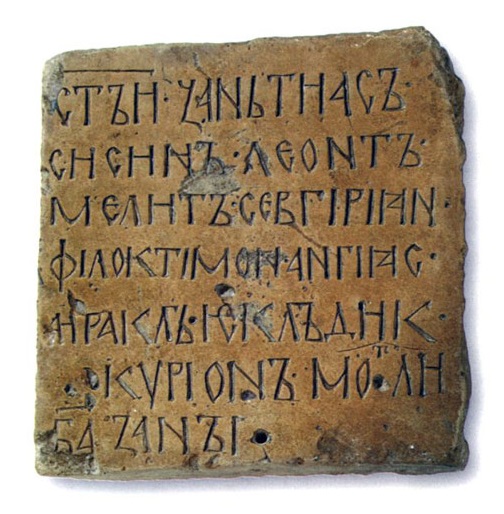 СТЪН·ZАНЬТНАСЪ·
СНСННЪ·ЛЕОНТЪ·
МЕЛНТЪ·СЕВГІРІꙖН·
ФІЛОКТІМОН·АНГІꙖС·
НРАКЛЬ·
КУРІОНЪ·МОЛН
БА ZАНЪІ·